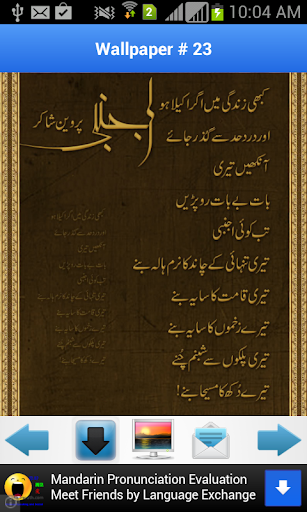 10:04 AM
Wallpaper # 23
اجنبی
پروین شاکر
کبھی زندگی میں اگر اکیلا ہو
اور درد حد سے گذر جائے
آنکھیں تیری
بات بے بات رو پڑیں
تب کوئی اجنبی
تیری تنہائی کے چاند کا نرم ہالہ بنے
تیری قامت کا سایہ بنے
تیرے زخموں کا سایہ بنے
تیری پلکوں سے شبنم چُنے
تیرے دُکھ کا مسیحا بنے!
Mandarin Pronunciation Evaluation
Meet Friends by Language Exchange